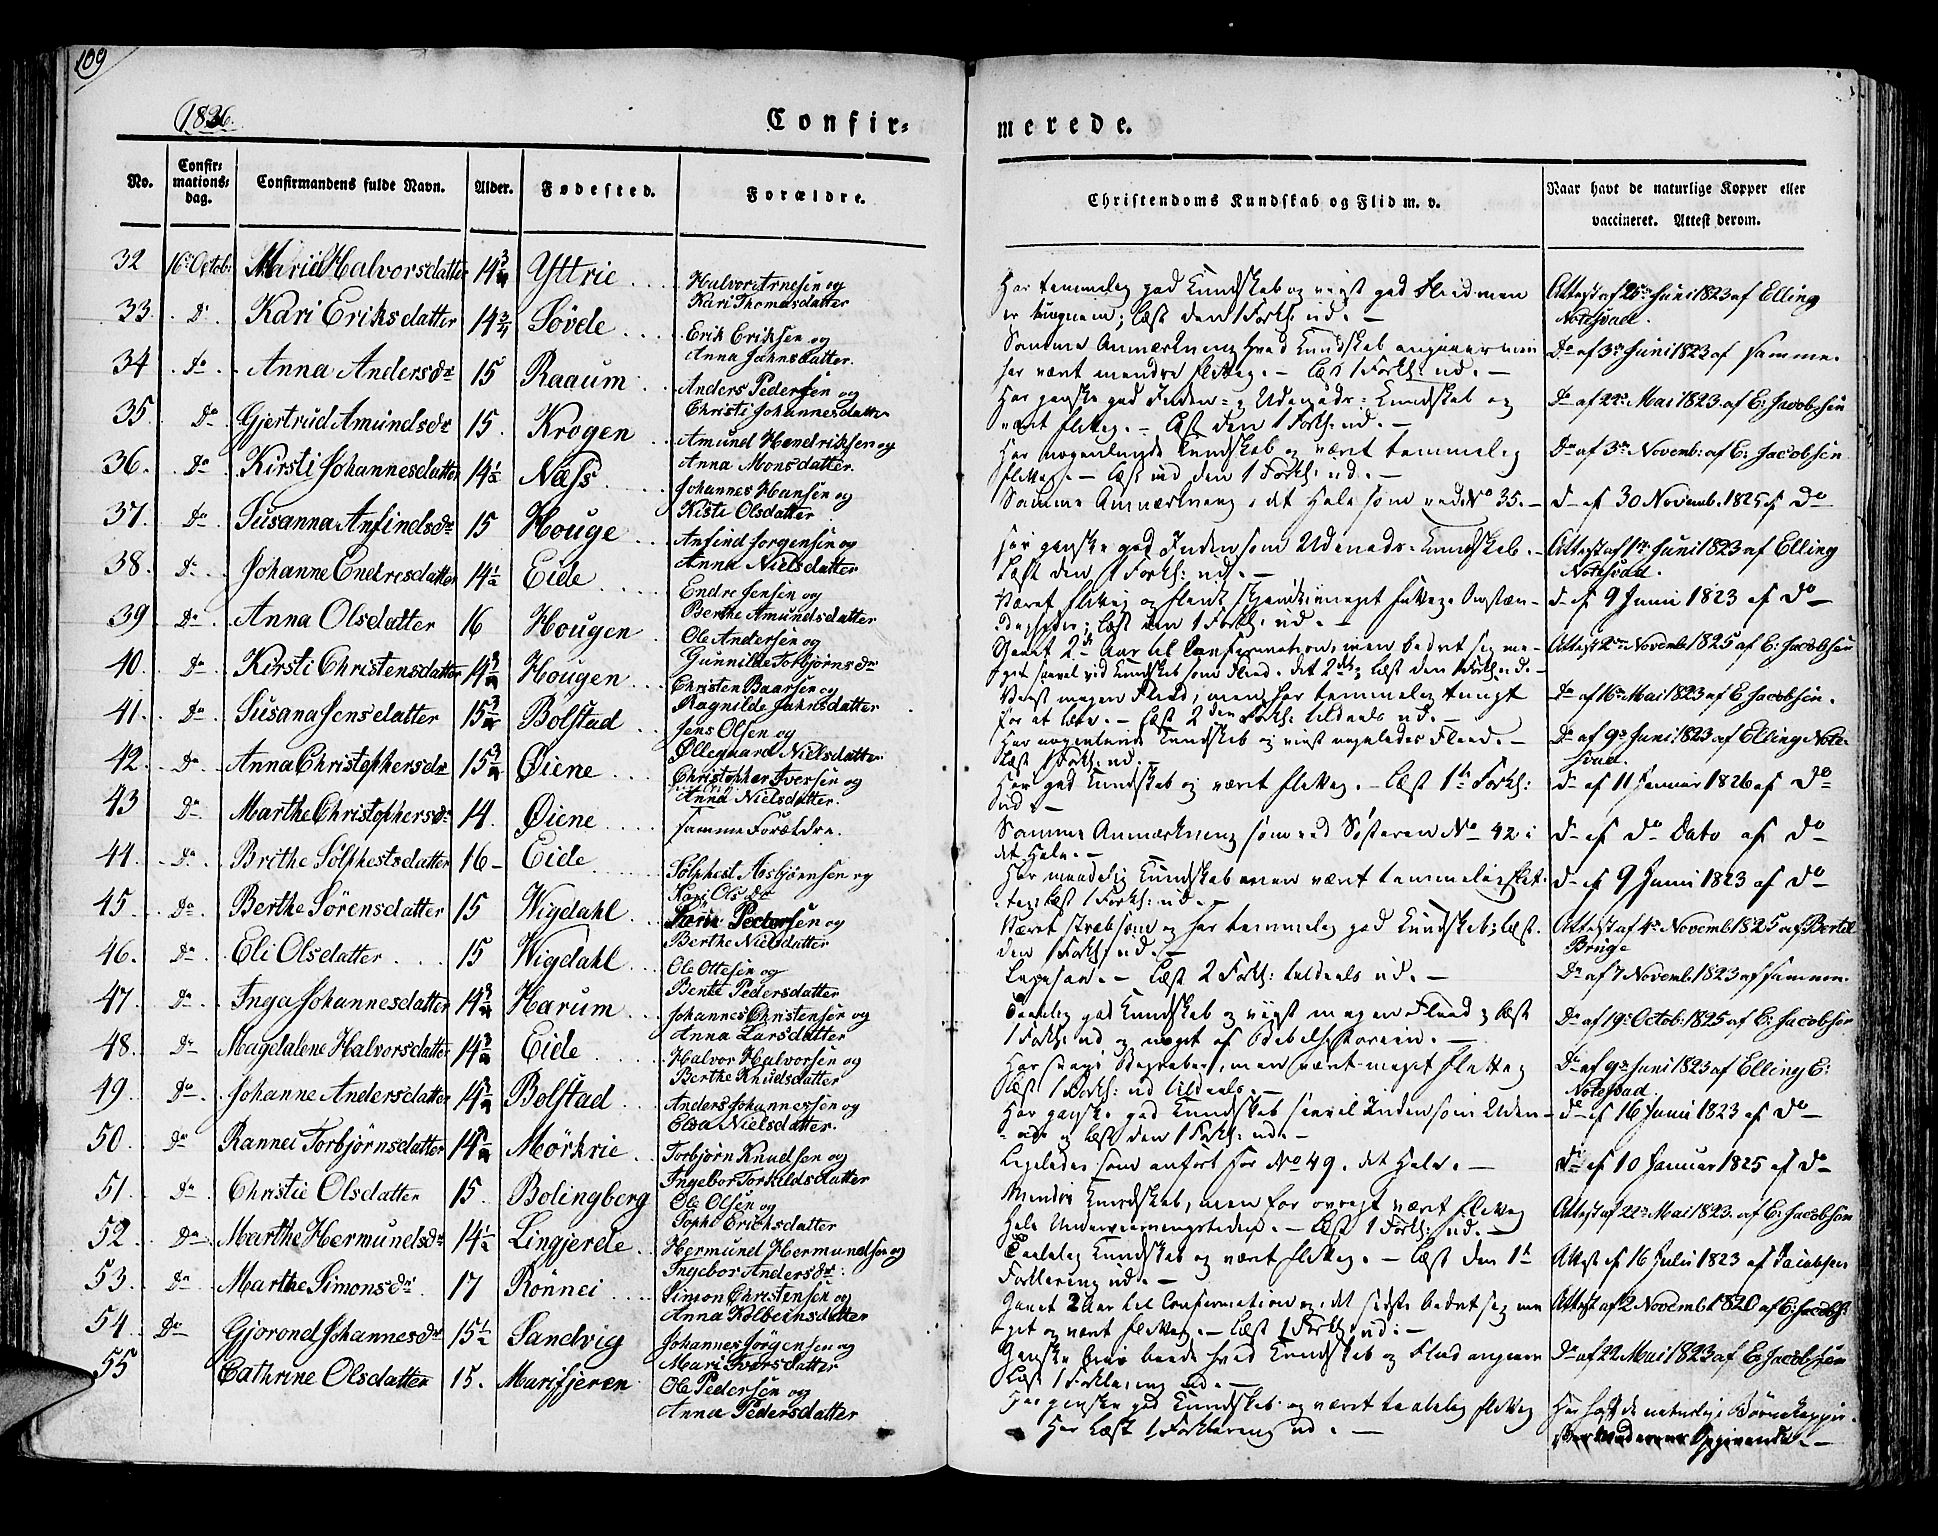 109
1826.
Confir-
merede.
No.
Confir-
mations-
dag.
Confirmandens fulde Navn.
Alder.
Fødested.
Forældre.
Christendoms Kundskab og Flid m. v.
Naar havt de naturlige Kopper eller
vaccineret. Attest derom.
32 16 Octob: Marie Halvorsdatter 14 3/4 Yttrie
Halvor Arnesen og
Kari Thomasdatter
Har temmelig god Kundskab og viist god Fliid men
er tungnem; læst den 1 Forkl: ud. —
Attest af 25 Juni 1823 af Elling
Notesvad.
33. Do Kari Eriksdatter 14 3/4 Søvde
Erik Eriksen og
Anna Jahnsdatter.
Samme Anmærkning hvad Kundskab angaaer men
har været mindre flittig. — læst 1 Forkl: ud. —
Do af 3 Juni 1823 af samme.
34 Do Anna Andersdr 15 Raaum
Anders Pedersen og
Christi Johannesdatter
Har ganske god Inden- og Udenads-Kundskab og
været flittig. — Læst den 1 Forkl: ud. —
Do af 22 Mai 1823. af E: Jacobsen
35. Do Gjertrud Amundsdr 15. Krogen
Amund Hendriksen og
Anna Monsdatter.
Har nogenlunde Kundskab og været temmelig
flittig. — Læst ud den 1 Forkl: ud. —
Do af 3 Novemb: af E: Jacobsen
36. Do Kirsti Johannesdatter 14 1/2 Næss
Johannes Hansen og
Kisti Olsdatter
Samme Anmærkning i det Hele som ved No 35. —
Do af 30 Novemb. 1825 af Do
37. Do Susanna Anfindsdr 15 Houge
Anfind Jorgensen og
Anna Nielsdatter
Har ganske god Inden som Udenads-Kundskab. —
Læst den 1 Forkl: ud. —
Attest af 1 Juni 1823 af Elling
Notesvad.
38. Do Johanne Endresdatter 14 1/2 Eide
Endre Jensen og
Berthe Amundsdatter
Været flittig og
læst den 1 Forkl: ud. —
Do af 9 Juni 1823 af Do
39 Do Anna Olsdatter 16 Hougen
Ole Andersen og
Gunnilde Torbjørnsdr
Gaaet 2 Aar til Confirmation, men bedret sig me-
get saavel ved Kundskab som Fliid. det 2det; læst den 1 Forkl: ud. —
Attest 2 Novemb 1825 af E: Jacobsen
40. Do Kirsti Christensdatter 14 3/4 Hougen
Christen Baarsen og
Ragnilde Jahnsdatter
Viist megen Fliid, men har temmelig tungt
for at lære. — Læst 2den Forkl: tildeels ud. —
Do af 16 Mai 1823 af E. Jacobsen.
41. Do Susana Jensdatter 15 3/4 Bolstad
Jens Olsen og
Øllegaard Nielsdatter
Har nogenlunde Kundskab og viist Fliid. —
Læst 1 Forkl: ud. —
Do af 9 Juni 1823 af Elling Note-
svad.
42. Do Anna Christophersdr 15 3/4 Øiene
Christopher Iversen og
Anna Nielsdatter.
Har god Kundskab og været flittig. — Læst 1te Forkl:
ud. —
Do af 11 Januar 1826 af Do
43 Do Marthe Christophersdr 14. Øiene
samme Forældre.
Samme Anmærkning som ved Søsteren No 42 i
det Hele. —
Do af do Dato af Do
44. Do Brithe Sølphestsdatter 16 - Eide
Sølphest Asbjørnsen og
Kari Olsdr
Har maadelig Kundskab men været temmelig flit-
tig; læst 1 Forkl: ud. —
Do af 9 Juni 1823 af Do
45. Do Berthe Sørensdatter 15 Vigdahl
Pedersen og
Berthe Nielsdatter
Været stræbsom og har temmelig god Kundskab; læst
den 1 Forkl: ud. —
Attest af 4 Novemb 1825 af Bertil
Bruge
46. Do Eli Olsdatter 15 Vigdahl
Ole Ottesen og
Bente Pedersdatter
Ligesaa. — Læst 2 Forkl: tildeels ud. —
Do af 7 Novemb. 1823 af sammen
47. Do Inga Johannesdatter 14 3/4 Harum
Johannes Christensen og
Anna Larsdatter
Taalelig god Kundskab og viist megen Fliid; læst
1 Forkl: ud og noget af Bibelhistorien. —
Do af 19 Octob: 1825 af E: Jacobsen
48. Do Magdalene Halvorsdatter 14 3/4 Eide
Halvor Halvorsen og
Berthe Knudsdatter
Har svage Begreber, men været meget flittig
Læst 1 Forkl: ud tildeels. —
Do af 9 Juni 1823 af Elling E:
Notesvad
49. Do Johanne Andersdatter 14 3/4 Bolstad
Anders Johannessen og
Elsa Nielsdatter.
Har ganske god Kundskab saavel Inden som Uden-
ads og læst den 1 Forkl: ud. —
Do af 16 Juni 1823 af Do
50. Do Rannei Torbjørnsdatter 14 3/4 Mørkrie
Torbjørn Knudsen og
Ingebor Torkildsdatter
Ligeledes som anført for No 49. det Hele. —
Do af 10 Januar 1825 af Do
51. Do Christie Olsdatter 15. Bolingberg
Ole Olsen og
Sophi Erichsdatter
Mindre Kundskab, men for øvrigt været flittig
Hele Underviisningstiden. — Læst 1 Forkl: ud. —
Attest af 22 Mai 1823. af E: Jacobsen
52 Do Marthe Hermundsdr 14 1/2 Lingjerde
Hermund Hermundsen og
Ingebor Andersdr.
Taalelig Kundskab og været flittig. — Læst den 1te
Forklaring ud. —
Attest af 16 Juli 1823 af Jacobsen
53. Do Marthe Simonsdr. 17 Rönnei
Simon Christensen og
Anna Kolbeinsdatter
Gaaet 2 Aar til Confirmation og i det sidste bedret sig me-
get og været flittig. — Læst 1 Forkl: ud. —
Attest af 2 Novemb. 1820 af E: Jacobs:
54. Do Gjorond Johannesdr 15 1/2 Sandvig
Johannes Jörgensen og
Mari Iversdatter
Ganske baade hvad Kundskab og Fliid angaaer
Læst 1 Forklaring ud. —
Do af 22 Mai 1823 af E: Jacobsen
55 Cathrine Olsdatter 15. Marifjeren
Ole Pedersen og
Anna Pedersdatter
Har ganske god Kundskab og været taalelig flittig
Har Læst 1 Forklaring ud. —
Har haft de naturlige Børnekopper
Opgivende. —